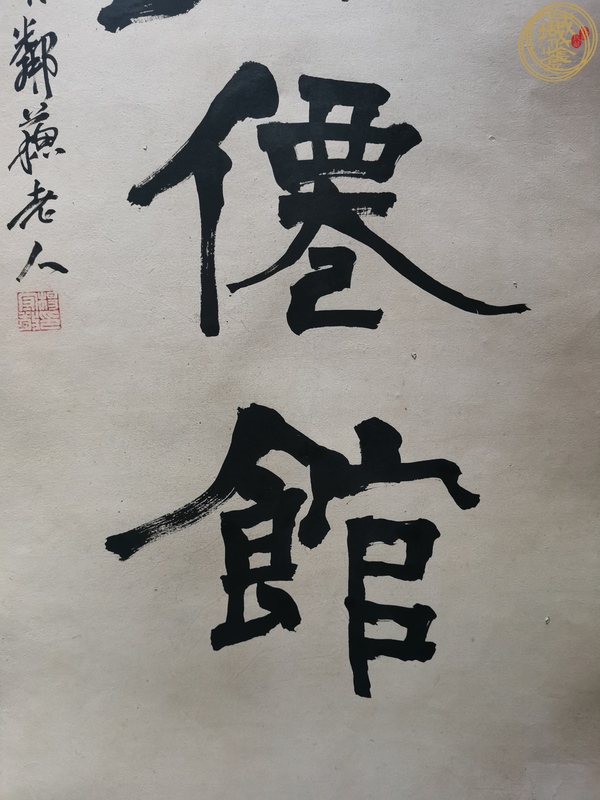 僊館
鄰蘇老人